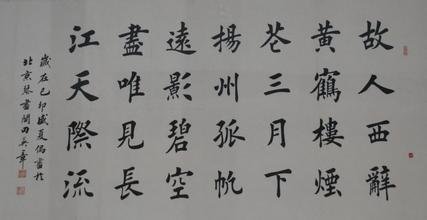 故人西辭
黃鶴樓煙
花三月下
揚州孤帆
遠影碧空
盡唯見長
江天際流
歲在己卯盛夏偶書於
北京書閣田英章